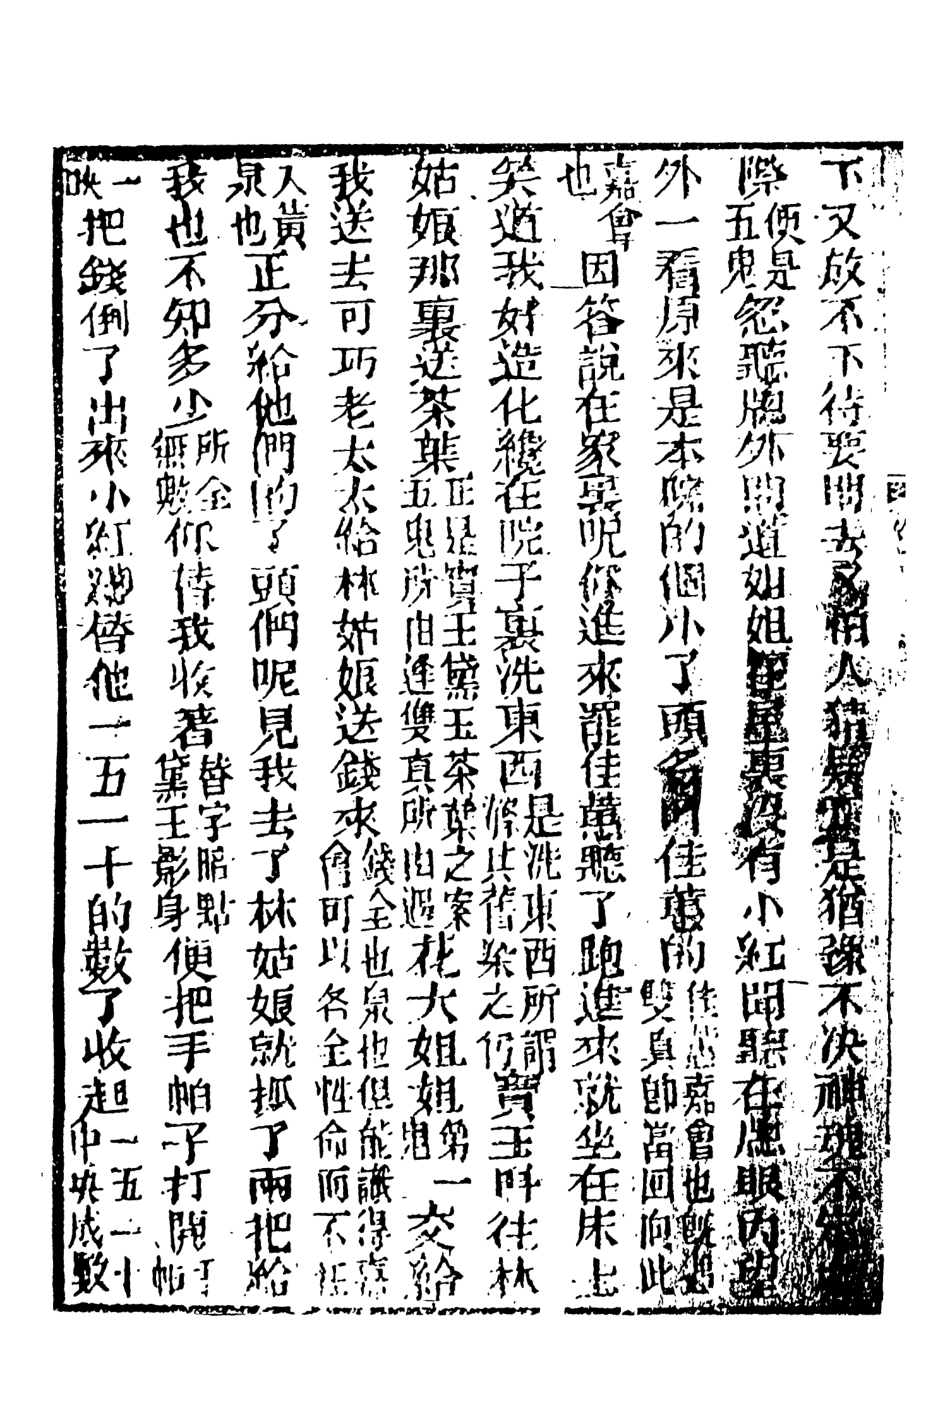 下又放不下待要問去又怕人猜疑正是猶豫不决神魂不定
際便是五鬼忽聽牕外問道姐姐在屋裏没有小紅聞聽在牕眼内望
外一看原來是本院的個小了頭名叫佳蕙的佳蕙嘉會也雙真卽當回向此
嘉會也因答說在家裏呢你進來罷佳蕙聽了跑進來就坐在床上
笑道我好造化纔在院子裏洗東西是洗東西所謂滌其舊染之仍寶玉呌往林
姑娘那裏送茶葉正是寶玉黛玉茶葉之案五鬼所由逢雙真所由遇花大姐姐第鬼一交給
我送去可巧老太太給林姑娘送錢來錢全也泉也但能識得會可以名全性命而不
入黃泉也正分給他們的了頭們呢見我去了林姑娘就抓了兩把給
我也不知多少所全無數你侍我收着替字暗點黛玉影身便把手帕子打開打帕
一映把錢倒了出來小紅細替他一五一十的數了收起一五一十中央成數